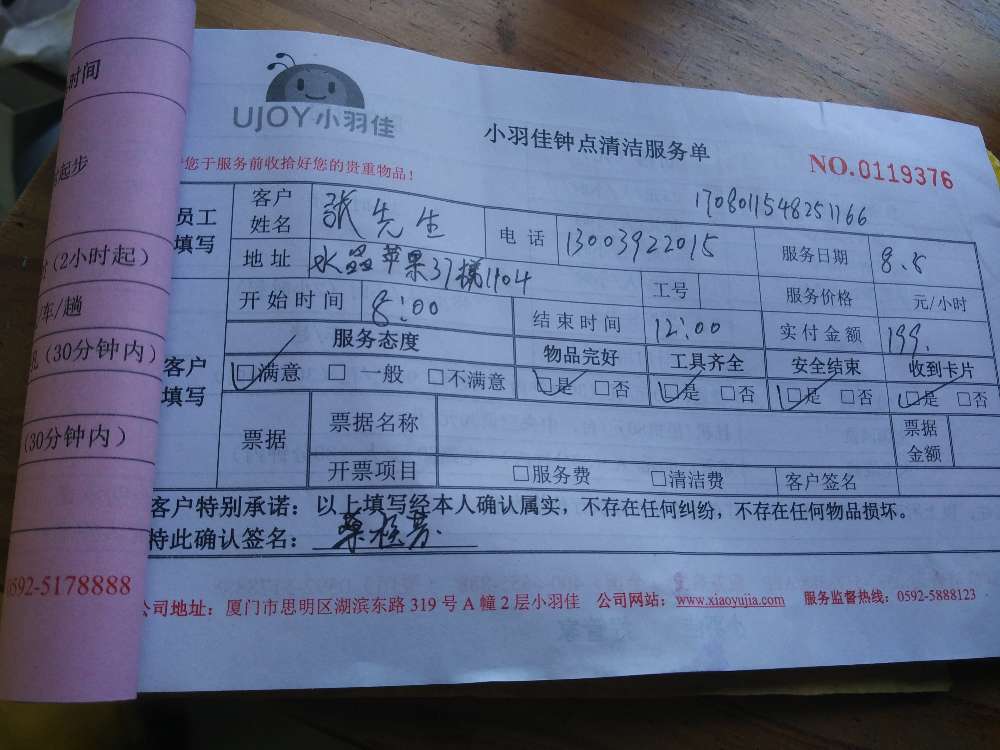 时间
起步
(2小时起)
/车/趟
(30分钟内)
(30分钟内)
0592-5178888
UJOY小羽佳
小羽佳钟点清洁服务单
NO.0119376
您于服务前收拾好您的贵重物品!
1708011548251166
员工填写
客户姓名 张先生 电话 13003922015 服务日期 8.8
地址 水晶苹果37梯1104 工号 服务价格 元/小时
开始时间 8:00 结束时间 12:00 实付金额 199.
客户填写
服务态度 物品完好 工具齐全 安全结束 收到卡片
□满意 □一般 □不满意 □是 □否 □是 □否 □是 □否 □是 □否
票据 票据名称 票据金额
开票项目 □服务费 □清洁费 客户签名
客户特别承诺:以上填写经本人确认属实,不存在任何纠纷,不存在任何物品损坏。
特此确认签名:
公司地址:厦门市思明区湖滨东路319号A幢2层小羽佳 公司网站:www.xiaoyujia.com 服务监督热线:0592-5888123